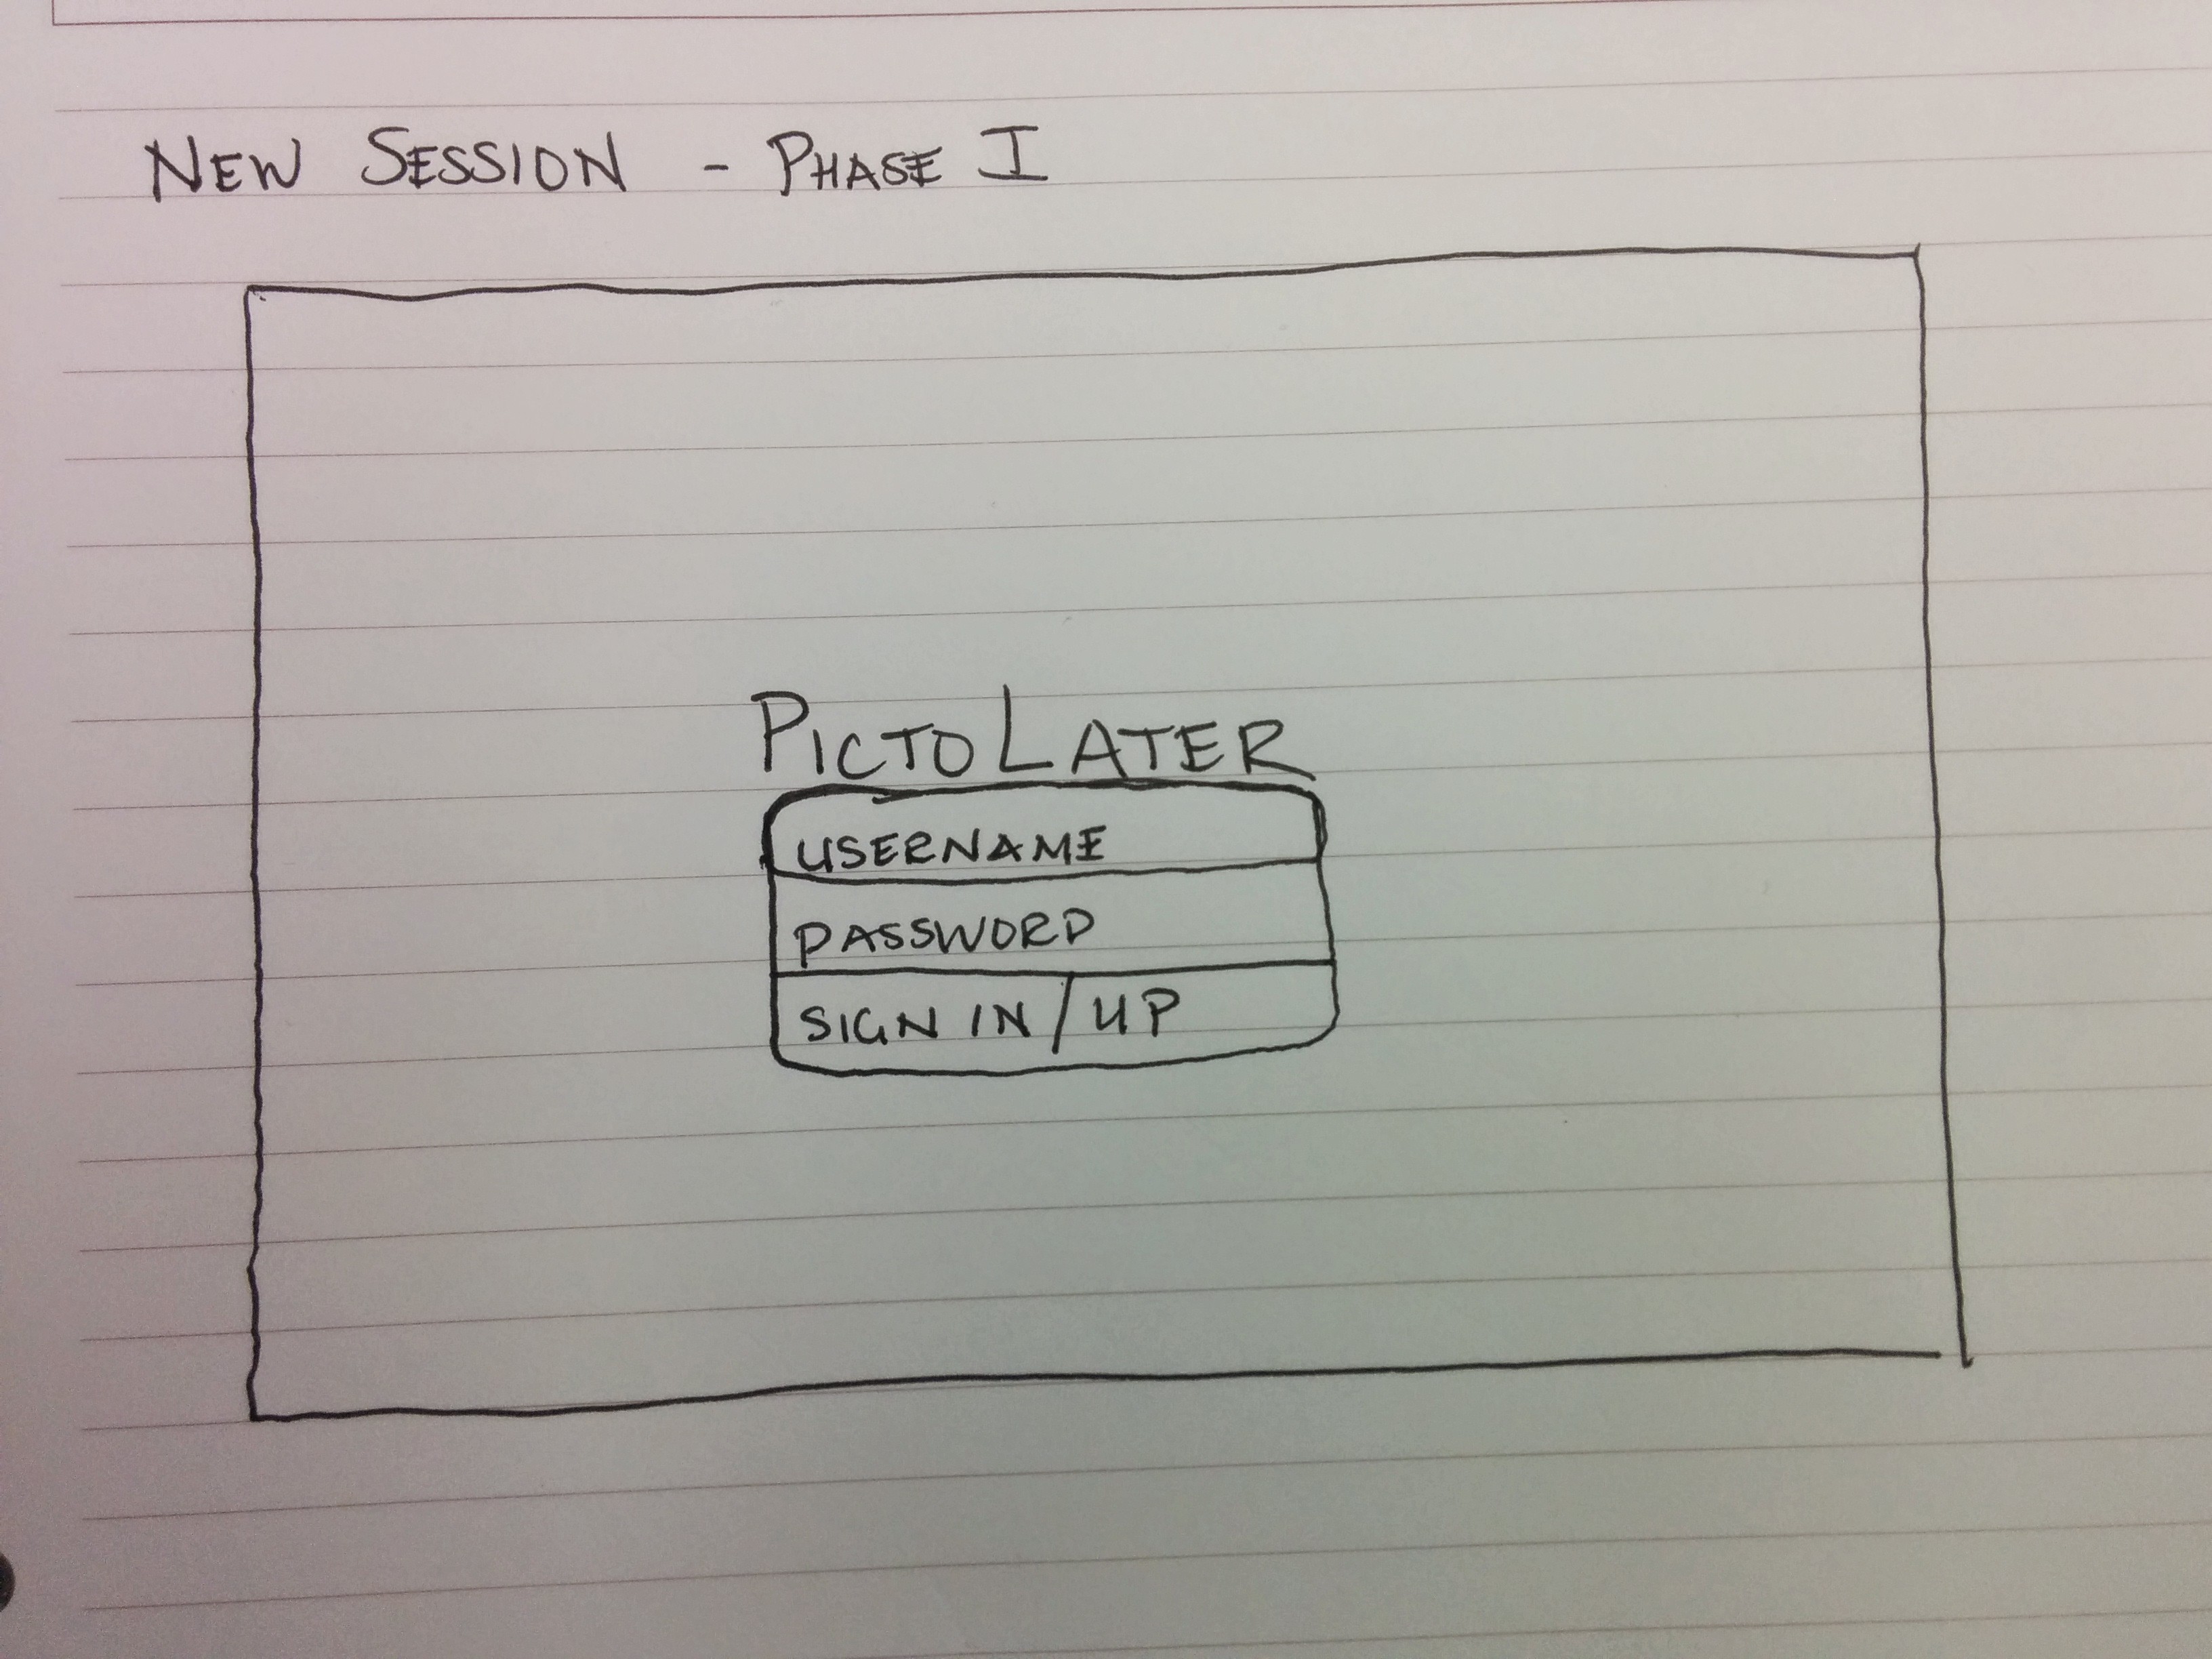 NEW SESSION - PHASE I
PICTOLATER
USERNAME
PASSWORD
SIGN IN / UP